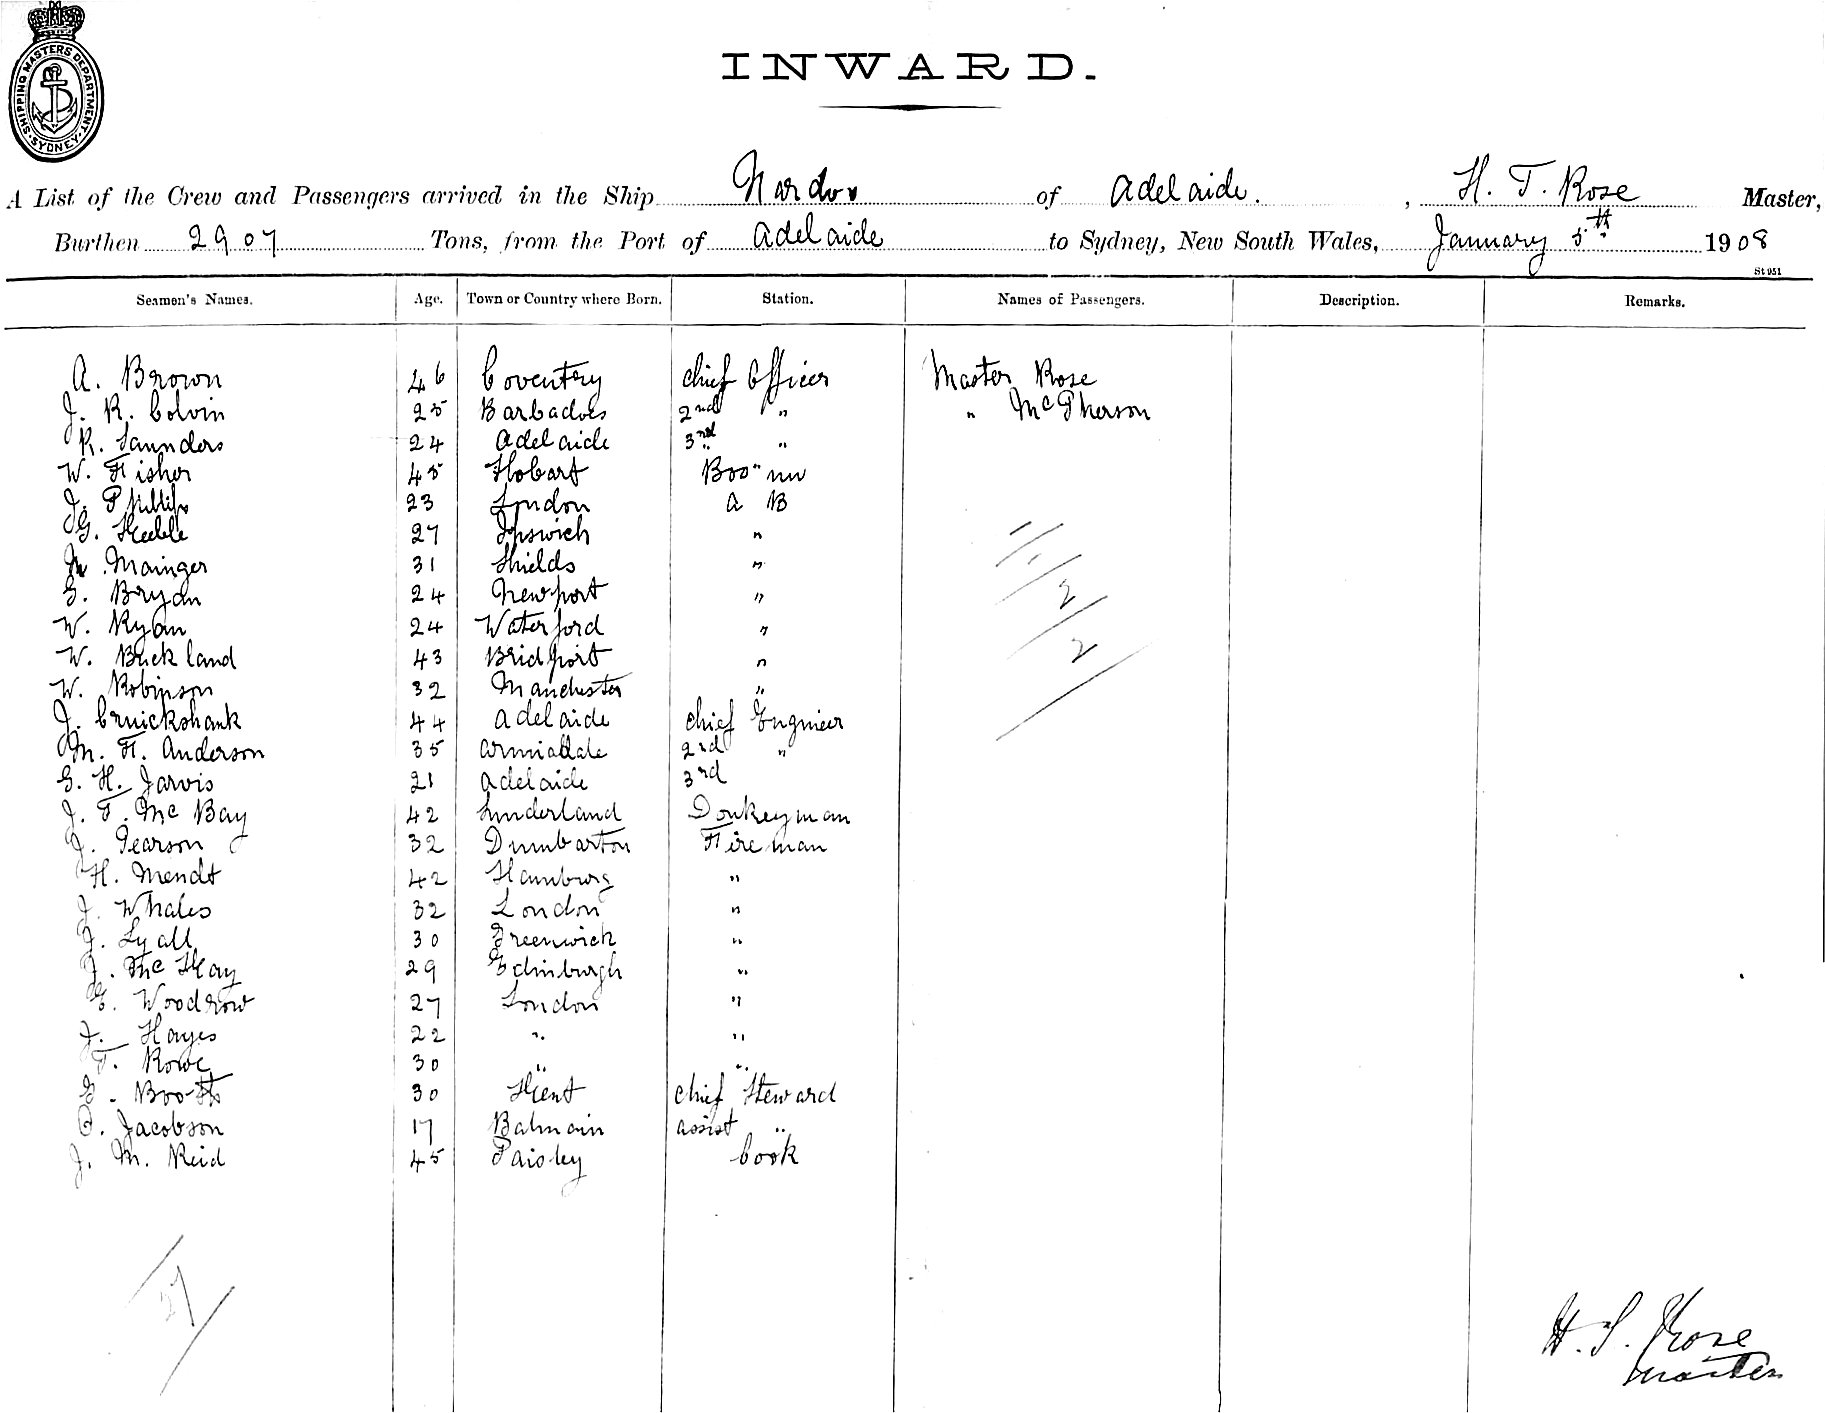 SHIPPING MASTERS DEPARTMENT. SYDNEY.
INWARD.
A List of the Crew and Passengers arrived in the Ship Nardoo of Adelaide. , H. T. Rose Master,
Burthen 2907 Tons, from the Port of Adelaide to Sydney, New South Wales, January 5th 1908
St 951
Seamen's Names. Age. Town or Country where Born. Station. Names of Passengers. Description. Remarks.
A. Brown 46 Coventry Chief Officer Master Rose
J. R. Colvin 25 Barbadoes 2nd " " McPherson
R. Saunders 24 Adelaide 3rd "
W. Fisher 45 Hobart Bos'un
J. Phillips 23 London A B
G. Keeble 27 Ipswich "
Mainger 31 Shields "
G. Bryan 24 Newport "
W. Ryan 24 Waterford "
W. Buckland 43 Bridport "
W. Robinson 32 Manchester "
J. Cruickshank 44 Adelaide Chief Engineer
M. F. Anderson 35 Armidale 2nd "
G. H. Jarvis 21 Adelaide 3rd
J. T. McBay 42 Sunderland Donkeyman
J. Pearson 32 Dumbarton Fireman
H. Mendt 42 Hamburg "
J. Whales 32 London "
J. Lyall 30 Greenwich "
J. McKay 29 Edinburgh "
G. Woodrow 27 London "
J. Hayes 22 " "
T. Rowe 30 " "
G. Booth 30 Kent Chief Steward
O. Jacobson 17 Balmain Assist "
J. M. Reid 45 Paisley Cook
27
H. T. Rose
Master